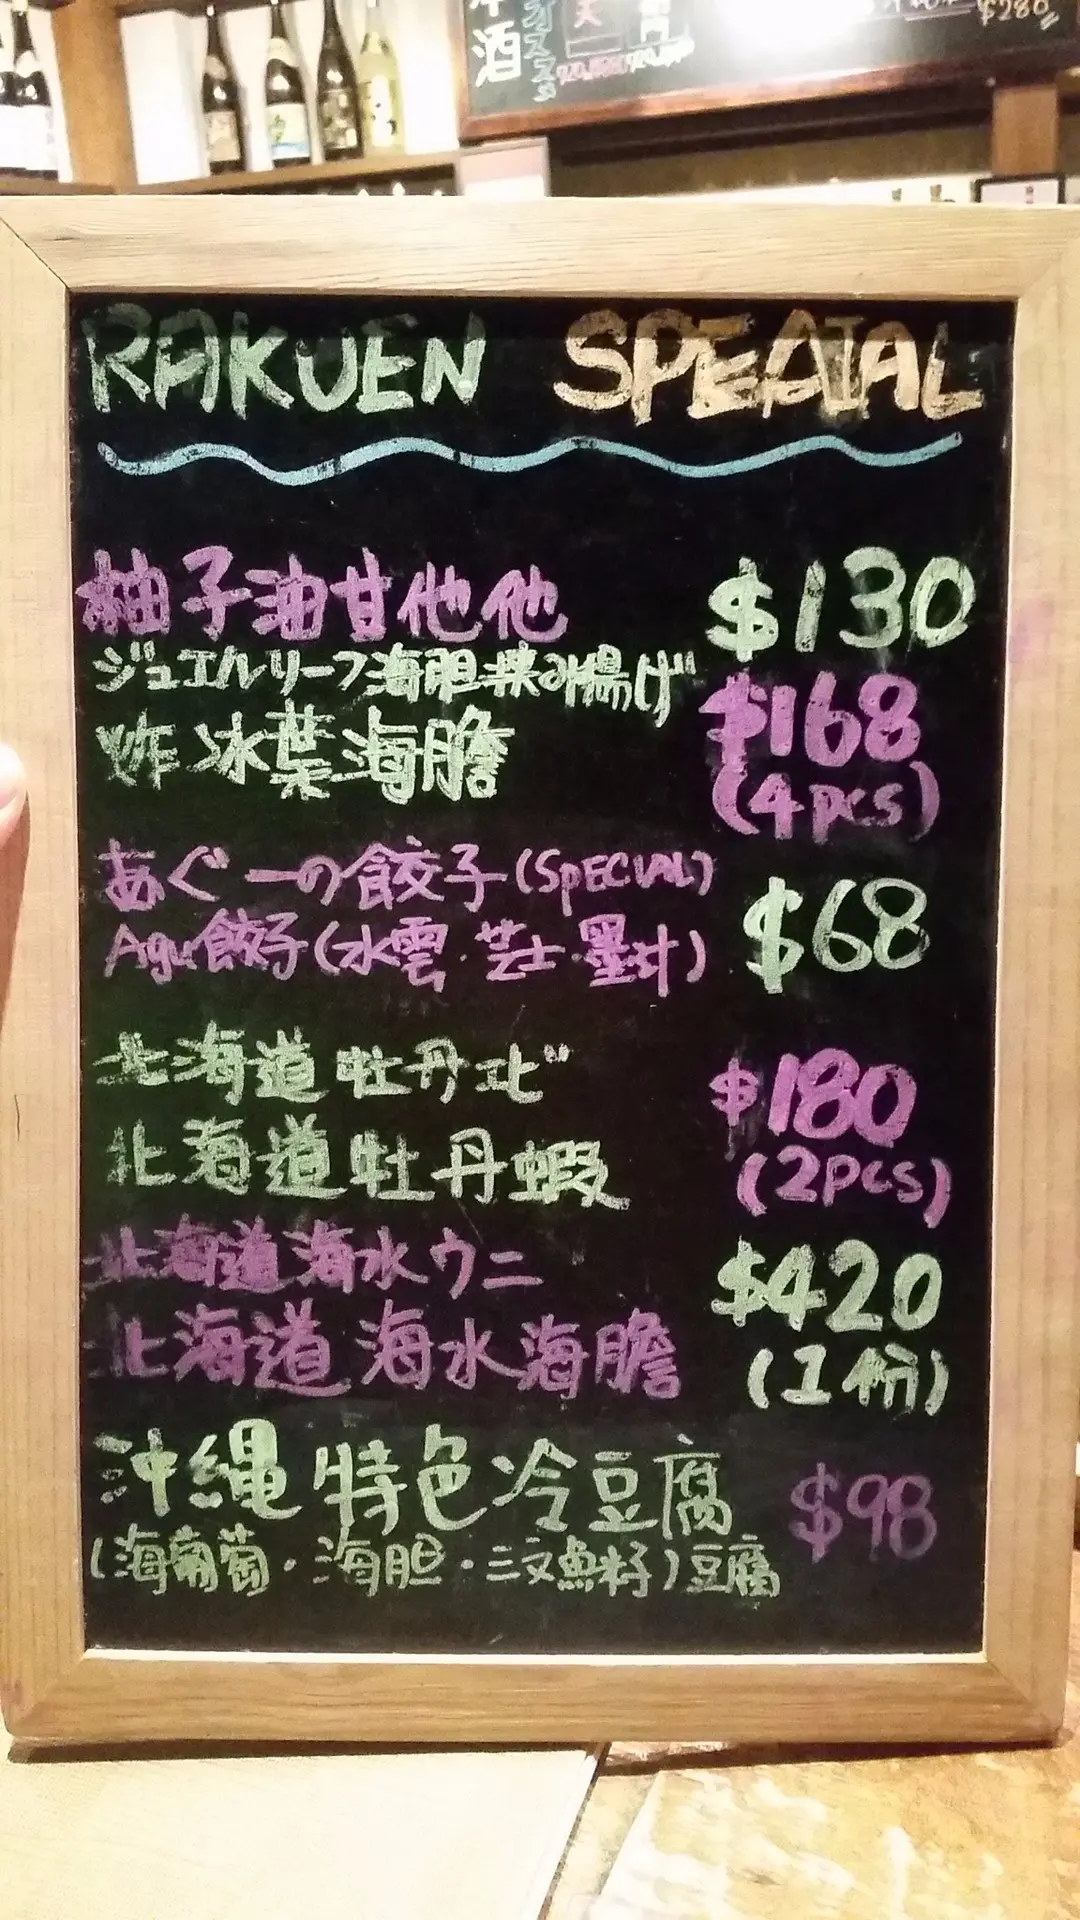 洋酒
$280
RAKUEN SPEAIAL
柚子油甘他他 $130
ジュエルリーフ海胆挟み揚げ
炸冰葉海膽 $168
(4pcs)
あぐーの餃子(SPECIAL)
Agu餃子(水雲·芝士·墨汁) $68
北海道牡丹エビ
北海道牡丹蝦 $180
(2pcs)
北海道海水ウニ
北海道海水海膽 $420
(1份)
沖縄特色冷豆腐 $98
(海葡萄·海胆·三文魚籽)豆腐